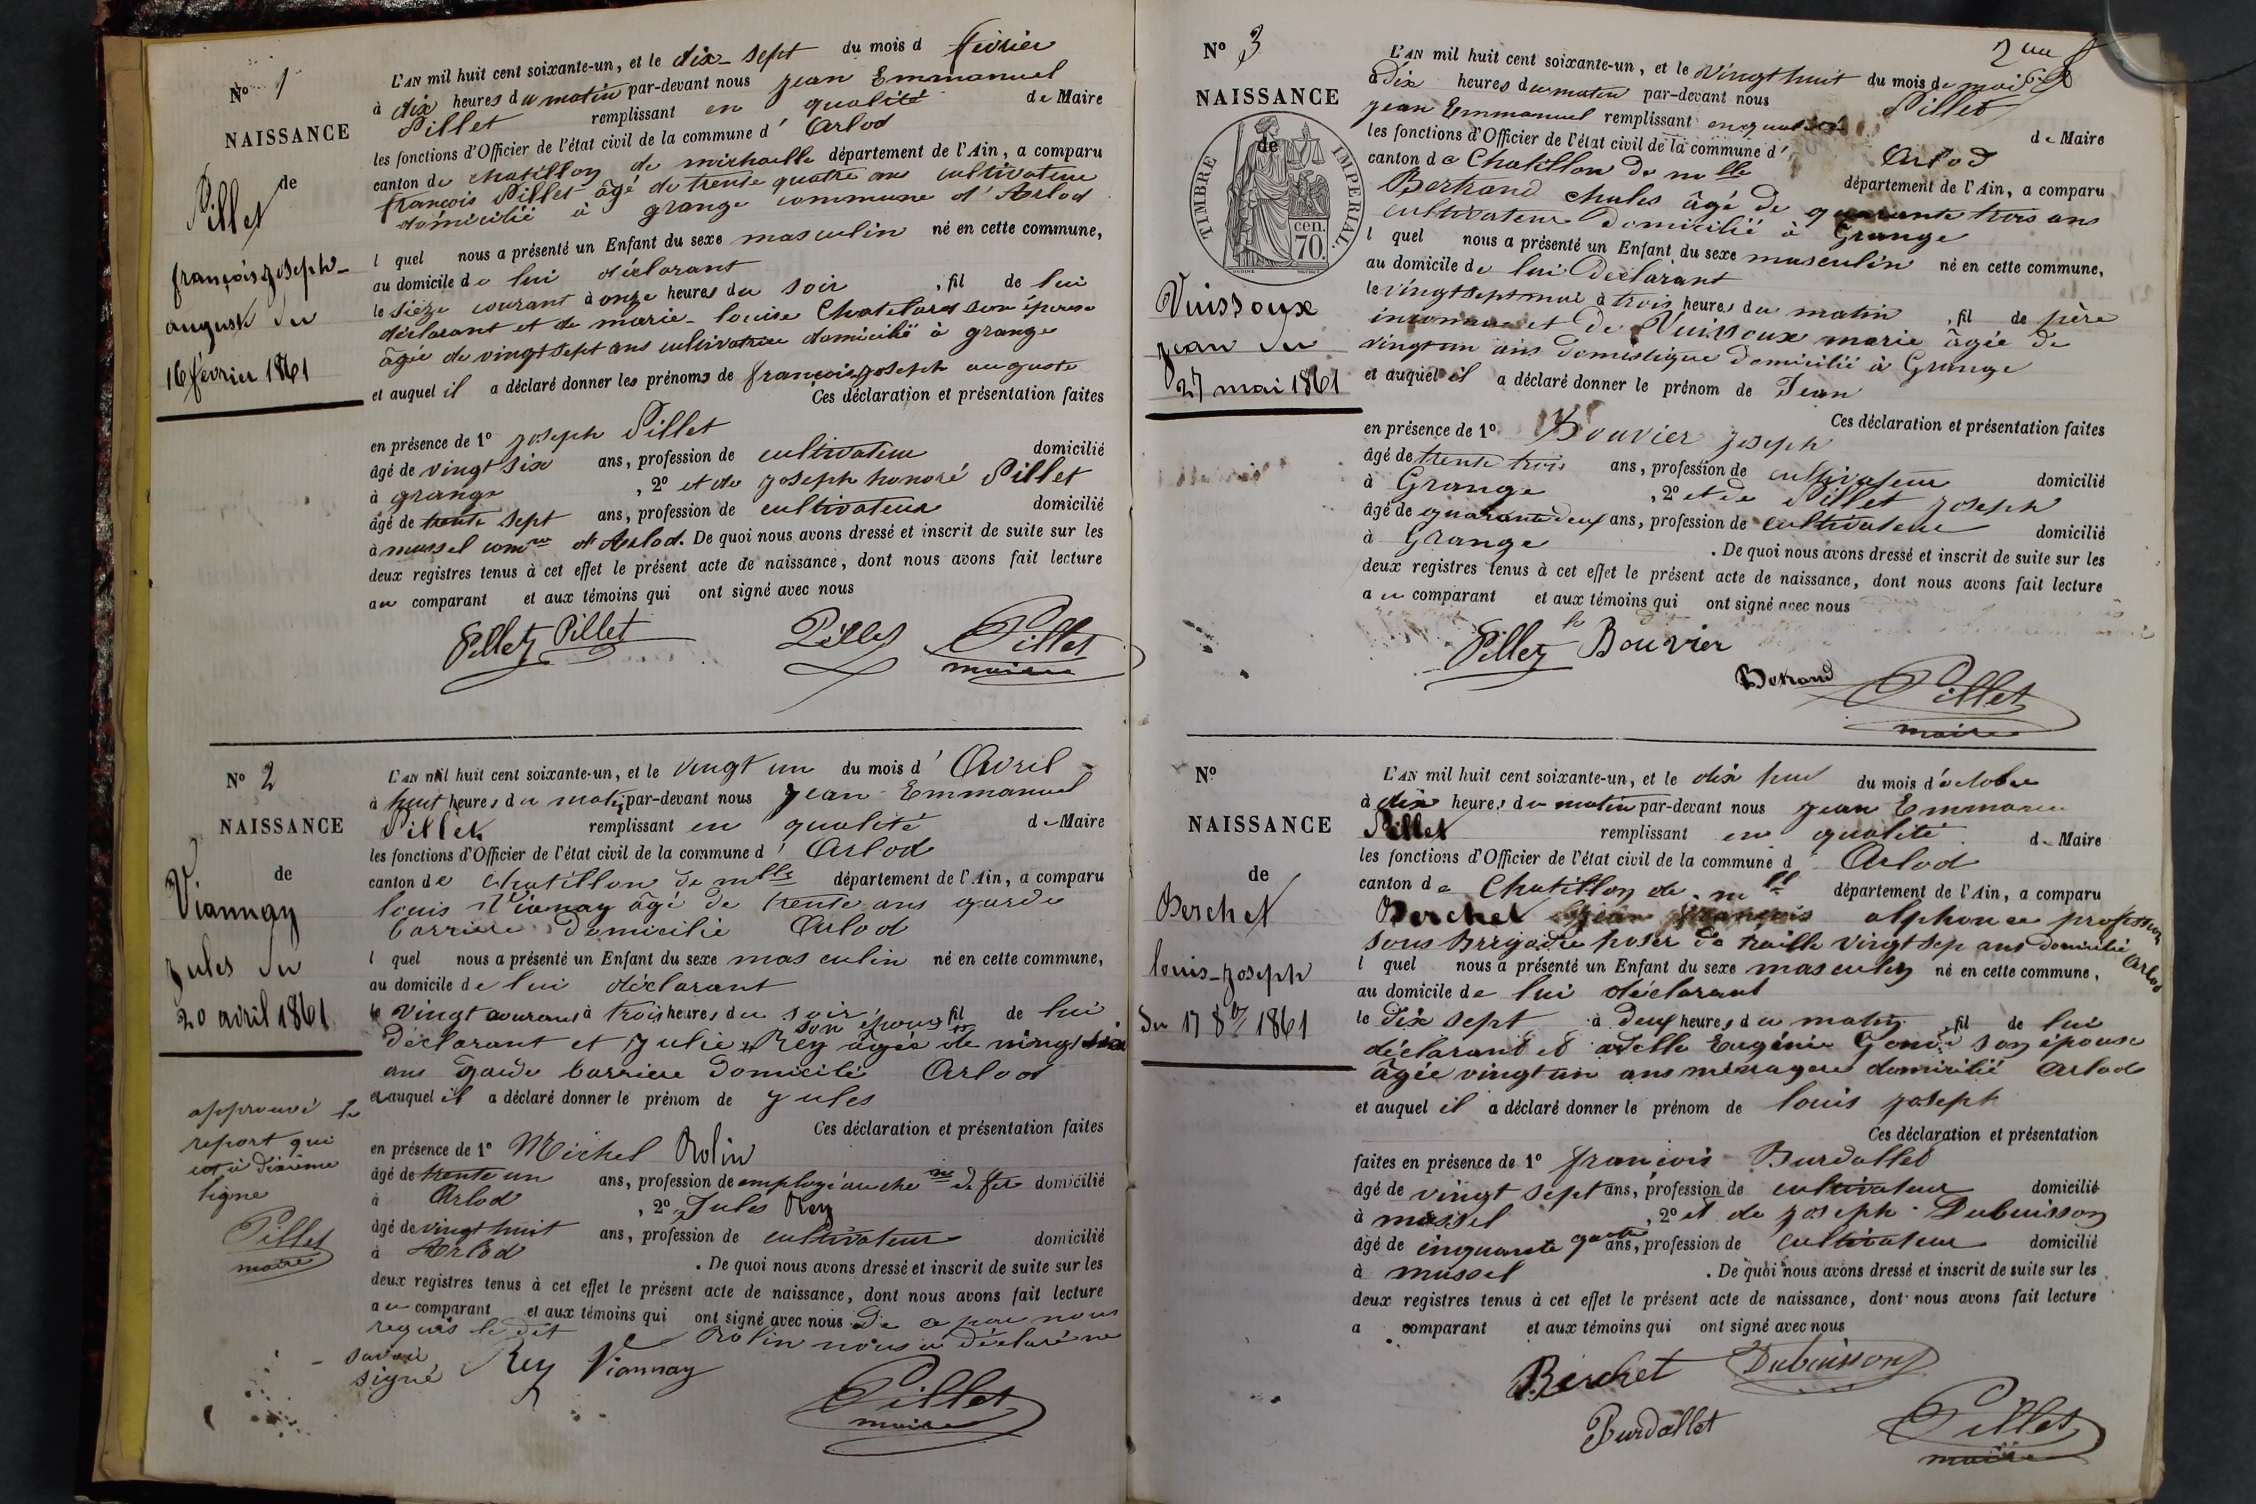 N° 1
NAISSANCE
de
Pillet
françois joseph
auguste du
16 février 1861
L'AN mil huit cent soixante-un, et le dix-sept du mois d février
à dix heures du matin par-devant nous jean Emmanuel
Pillet remplissant en qualité de Maire
les fonctions d'Officier de l'état civil de la commune d' Arlod
canton de chatillon de michaille département de l'Ain, a comparu
françois Pillet âgé de trente quatre ans cultivateur
domicilié à grange commune d'Arlod
l quel nous a présenté un Enfant du sexe masculin né en cette commune,
au domicile de lui déclarant
le sieze courant à onze heures du soir, fil de lui
déclarant et de marie-louise Chatelard son épouse
âgée de vingt sept ans cultivatrice domicilié à grange
et auquel il a déclaré donner les prénoms de françois joseph auguste
Ces déclaration et présentation faites
en présence de 1° joseph Pillet
âgé de vingt six ans, profession de cultivateur domicilié
à grange, 2° et de joseph honoré Pillet
âgé de trente sept ans, profession de cultivateur domicilié
à mussel comne d'Arlod. De quoi nous avons dressé et inscrit de suite sur les
deux registres tenus à cet effet le présent acte de naissance, dont nous avons fait lecture
au comparant et aux témoins qui ont signé avec nous
Pillet Pillet Pillet Pillet
maire
N° 2
NAISSANCE
de
Viannay
jules du
20 avril 1861
L'AN mil huit cent soixante-un, et le vingt un du mois d' Avril
à huit heures du matin par-devant nous jean Emmanuel
Pillet remplissant en qualité de Maire
les fonctions d'Officier de l'état civil de la commune d' Arlod
canton de chatillon de mlle département de l'Ain, a comparu
louis Vianay âgé de trente ans garde
barriere domicilié Arlod
l quel nous a présenté un Enfant du sexe masculin né en cette commune,
au domicile de lui déclarant
le vingt courant à trois heures du soir, fil de lui
son épouse
déclarant et julie Rey âgée de vingt six
ans garde barriere domicilié Arlod
et auquel il a déclaré donner le prénom de jules
Ces déclaration et présentation faites
en présence de 1° Michel Rolin
âgé de trente un ans, profession de employé au chemin de fer domicilié
à Arlod, 2° Jules Rey
âgé de vingt huit ans, profession de cultivateur domicilié
à Arlod. De quoi nous avons dressé et inscrit de suite sur les
deux registres tenus à cet effet le présent acte de naissance, dont nous avons fait lecture
au comparant et aux témoins qui ont signé avec nous De ce par nous
requis le dit Rolin nous a déclaré ne
savoir
signé Rey Viannay
Pillet
maire
approuvé le
report qui
est à dixième
ligne
Pillet
maire
N° 3
NAISSANCE
de
TIMBRE IMPERIAL
70. cen.
Vuissoux
jean du
27 mai 1861
L'AN mil huit cent soixante-un, et le vingt huit du mois de mai
à dix heures du matin par-devant nous Pillet
jean Emmanuel remplissant en qualité de Maire
les fonctions d'Officier de l'état civil de la commune d' Arlod
canton de Chatillon de mlle département de l'Ain, a comparu
Bertrand chales âgé de quarante trois ans
cultivateur domicilié à Grange
l quel nous a présenté un Enfant du sexe masculin né en cette commune,
au domicile de lui déclarant
le vingt sept mai à trois heures du matin, fil de père
inconnu et de Vuissoux marie âgée de
vingt un ans domestique domicilié à Grange
et auquel il a déclaré donner le prénom de Jean
Ces déclaration et présentation faites
en présence de 1° Bouvier joseph
âgé de trente trois ans, profession de cultivateur domicilié
à Grange, 2° et de Pillet joseph
âgé de quarante deux ans, profession de cultivateur domicilié
à Grange. De quoi nous avons dressé et inscrit de suite sur les
deux registres tenus à cet effet le présent acte de naissance, dont nous avons fait lecture
au comparant et aux témoins qui ont signé avec nous
Pillet Bouvier
Bertrand Pillet
maire
N°
NAISSANCE
de
Berchet
louis-joseph
du 17 8bre 1861
L'AN mil huit cent soixante-un, et le dix huit du mois d'octobre
à dix heures du matin par-devant nous jean Emmanuel
Pillet remplissant en qualité de Maire
les fonctions d'Officier de l'état civil de la commune d Arlod
canton de Chatillon de mll département de l'Ain, a comparu
Berchet jean françois alphonce profession
sous Brigadie vingt sep ans domicilié Arlod
l quel nous a présenté un Enfant du sexe masculin né en cette commune,
au domicile de lui déclarant
le dix sept à deux heures du matin, fil de lui
déclarant et adelle Eugénie son épouse
âgée vingt un ans ménagere domicilié Arlod
et auquel il a déclaré donner le prénom de louis joseph
Ces déclaration et présentation
faites en présence de 1° françois Burdallet
âgé de vingt sept ans, profession de cultivateur domicilié
à mussel, 2° et de joseph Dubuisson
âgé de cinquante quatre ans, profession de cultivateur domicilié
à mussel. De quoi nous avons dressé et inscrit de suite sur les
deux registres tenus à cet effet le présent acte de naissance, dont nous avons fait lecture
a comparant et aux témoins qui ont signé avec nous
Berchet Dubuisson
Burdallet Pillet
maire